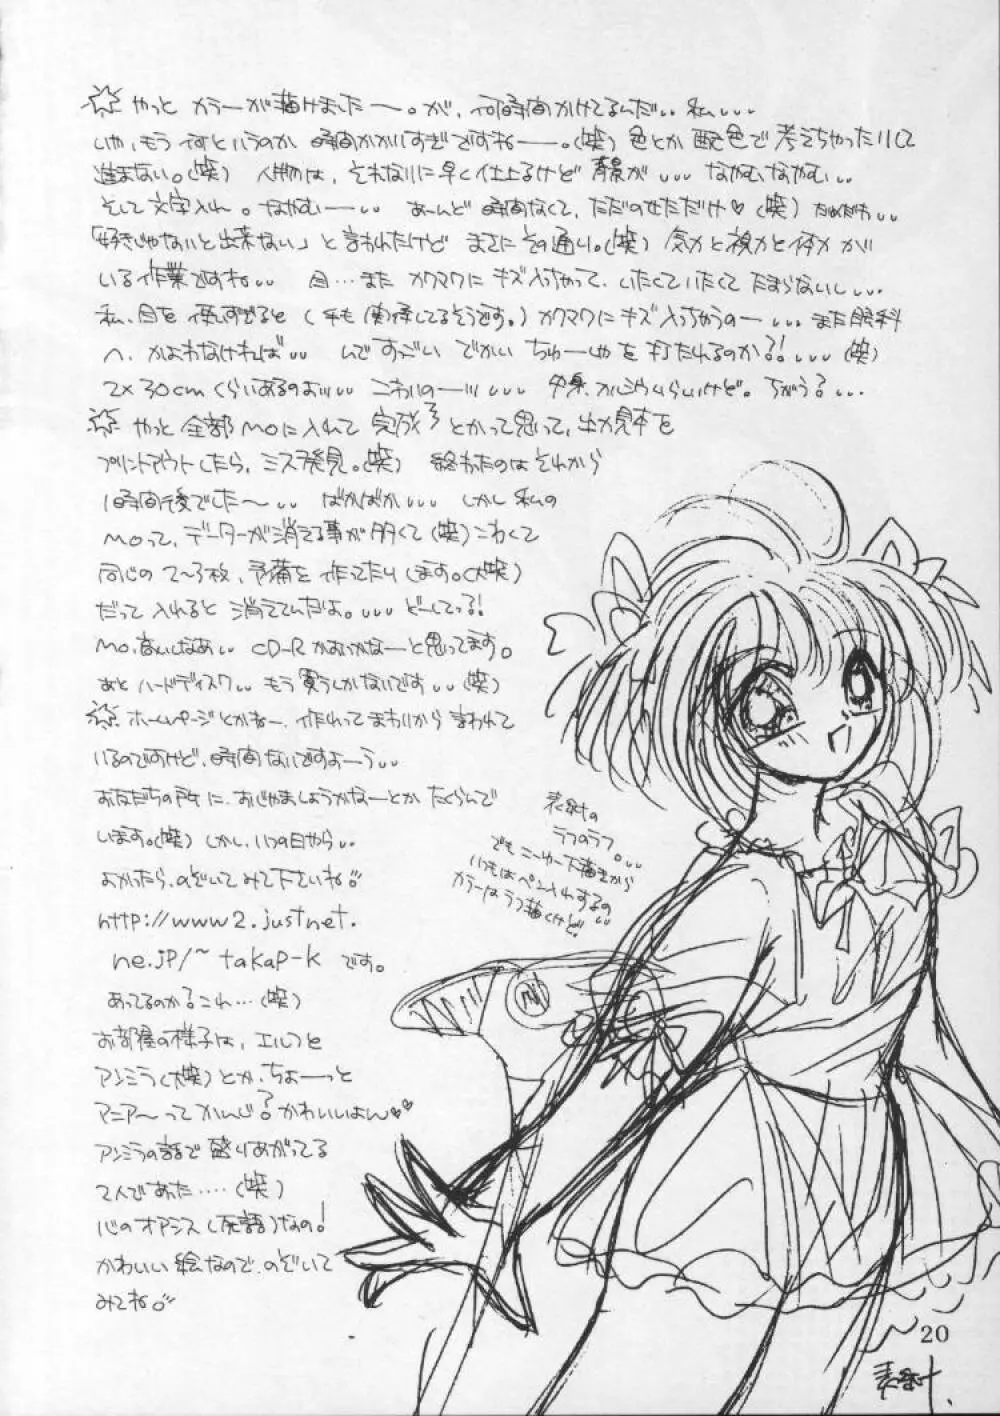 ☆ やっと カラーが描けました〜。が、何時間かけてるんだ‥私‥‥
いや、もう何というのか 時間かかりすぎですね──。(笑) 色とか配色で考えちゃったりして
進まない。(笑) 人物は、それなりに早く仕上るけど 背景が‥‥ なやむなやむ‥
そして文字入れ。なやむ──‥ あーんど 時間なくて、ただのせただけ♡(笑) だめだわ‥
「好きじゃないと出来ない」と言われたけど まさにその通り。(笑) 気力と視力と体力が
いる作業ですね‥ 目…また カクマクに キズ入っちゃって、いたくていたくて たまらないし‥‥
私、目を使いすぎると (手も関係してるそうです。) カクマクにキズ入っちゃうの─‥‥また眼科
へ、かよわなければ‥ んで すっごい でかい ちゅーしゃを 打たれるのか?!‥‥(笑)
2×30cm くらいあるのよ‥‥ こわいの─‥‥ 中身、カルシウムらしいけど。ちがう?‥‥
☆ やっと 全部 MOに入れて 完成 とかって思って、出力見本を
プリントアウトしたら、ミス発見。(笑) 終わったのは それから
1時間後でした〜‥ ばかばか‥‥ しかし 私の
MOって、データーが消える事が多くて(笑) こわくて
同じの 2〜3枚、予備を作ってたりします。(大笑)
だって 入れると 消えてんだよ。‥‥ どーしてっ?!
MO、高いしなあ‥ CD-R かおうかなーと思ってます。
あと ハードディスク‥ もう買うしかないです‥(笑)
☆ ホームページとかね─、作れって まわりから 言われて
いるのですけど、時間ないですよーう‥
お友だちの所に、おじゃましようかなーとか たくらんで
います。(笑) しかし、いつの日やら‥
よかったら、のぞいてみて下さいね
http://www2.justnet.
ne.jp/~takap-k です。
あってるのか?これ…(笑)
お部屋の様子は、エルフと
アンミラ(大笑) とか、ちょーっと
マニア〜って かんじ? かわいいよん♡♡
アンミラの話で 盛りあがってる
2人であった‥‥(笑)
心のオアシス(死語)なの!
かわいい絵なので、のぞいて
みてね
表紙の
ラフのラフ。‥
でも
いつもはペン入れするの
カラーはラフ描くけど。
20
表紙